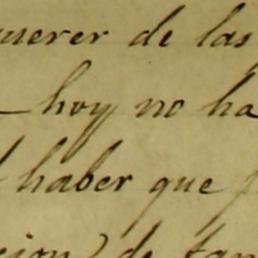 querer de las
hoy no ha
haber que
cion) de tan